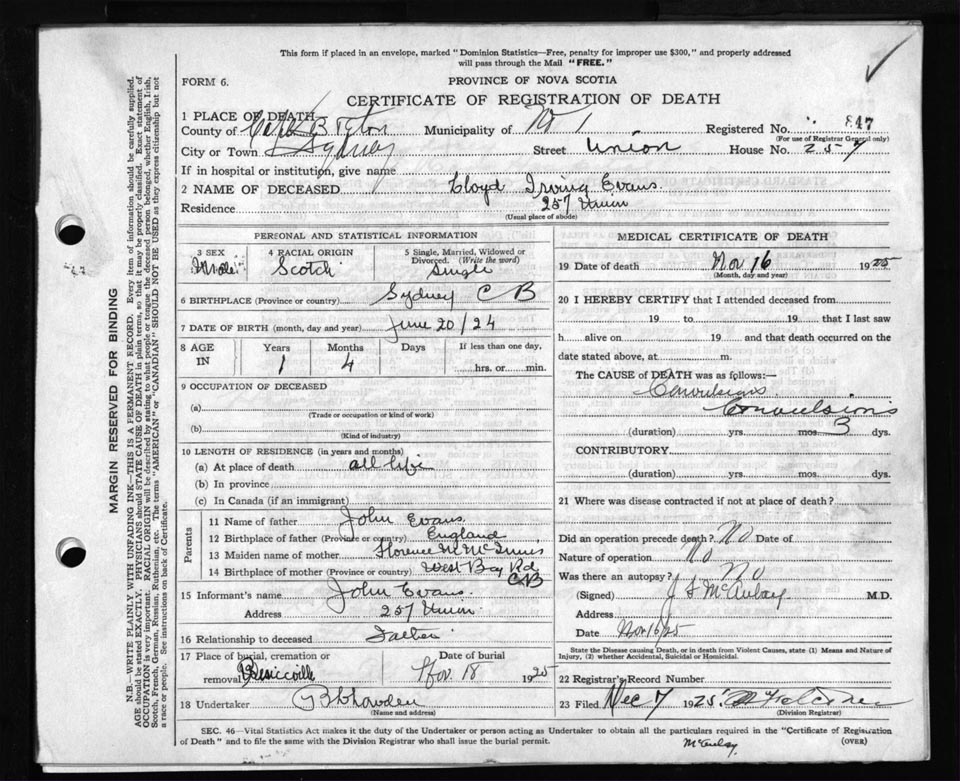 This form if placed in an envelope, marked "Dominion Statistics—Free, penalty for improper use $300," and properly addressed
will pass through the Mail "FREE."
FORM 6.
PROVINCE OF NOVA SCOTIA
CERTIFICATE OF REGISTRATION OF DEATH
1 PLACE OF DEATH
County of Cape Breton Municipality of No 1 Registered No. 847
(For use of Registrar General only)
City or Town Sydney Street Union House No. 257
If in hospital or institution, give name
2 NAME OF DECEASED Lloyd Irving Evans
Residence 257 Union
(Usual place of abode)
PERSONAL AND STATISTICAL INFORMATION
3 SEX Male 4 RACIAL ORIGIN Scotch 5 Single, Married, Widowed or Divorced. (Write the word) Single
6 BIRTHPLACE (Province or country) Sydney CB
7 DATE OF BIRTH (month, day and year) June 20/24
8 AGE IN Years 1 Months 4 Days If less than one day, hrs. or min.
9 OCCUPATION OF DECEASED
(a)
(Trade or occupation or kind of work)
(b)
(Kind of industry)
10 LENGTH OF RESIDENCE (in years and months)
(a) At place of death all life
(b) In province
(c) In Canada (if an immigrant)
Parents
11 Name of father John Evans
12 Birthplace of father (Province or country) England
13 Maiden name of mother Florence M McInnis
14 Birthplace of mother (Province or country) West Bay Rd CB
15 Informant's name John Evans
Address 257 Union
16 Relationship to deceased Father
17 Place of burial, cremation or removal Date of burial Nov 18 1925
18 Undertaker
(Name and address)
MEDICAL CERTIFICATE OF DEATH
19 Date of death Nov 16 1925
(Month, day and year)
20 I HEREBY CERTIFY that I attended deceased from
19 to 19 that I last saw
h alive on 19 and that death occurred on the
date stated above, at m.
The CAUSE of DEATH was as follows:—
Convulsions
Convulsions
(duration) yrs. mos. 3 dys.
CONTRIBUTORY
(duration) yrs. mos. dys.
21 Where was disease contracted if not at place of death?
Did an operation precede death? No Date of
Nature of operation No
Was there an autopsy? No
(Signed) M.D.
Address
Date Nov 16/25
State the Disease causing Death, or in death from Violent Causes, state (1) Means and Nature of
Injury, (2) whether Accidental, Suicidal or Homicidal.
22 Registrar's Record Number
23 Filed Dec 7 1925
(Division Registrar)
SEC. 46—Vital Statistics Act makes it the duty of the Undertaker or person acting as Undertaker to obtain all the particulars required in the "Certificate of Registration
of Death" and to file the same with the Division Registrar who shall issue the burial permit.
(OVER)
MARGIN RESERVED FOR BINDING
N.B.—WRITE PLAINLY WITH UNFADING INK—THIS IS A PERMANENT RECORD. Every item of information should be carefully supplied.
AGE should be stated EXACTLY. PHYSICIANS should STATE CAUSE OF DEATH in plain terms, so that it may be properly classified. Exact statement of
OCCUPATION is very important. RACIAL ORIGIN will be described by stating to what people or tongue the deceased person belonged, whether English, Irish,
Scotch, French, German, Russian, Ruthenian, etc. The terms "AMERICAN" or "CANADIAN" SHOULD NOT BE USED as they express citizenship but not
a race or people. See instructions on back of Certificate.